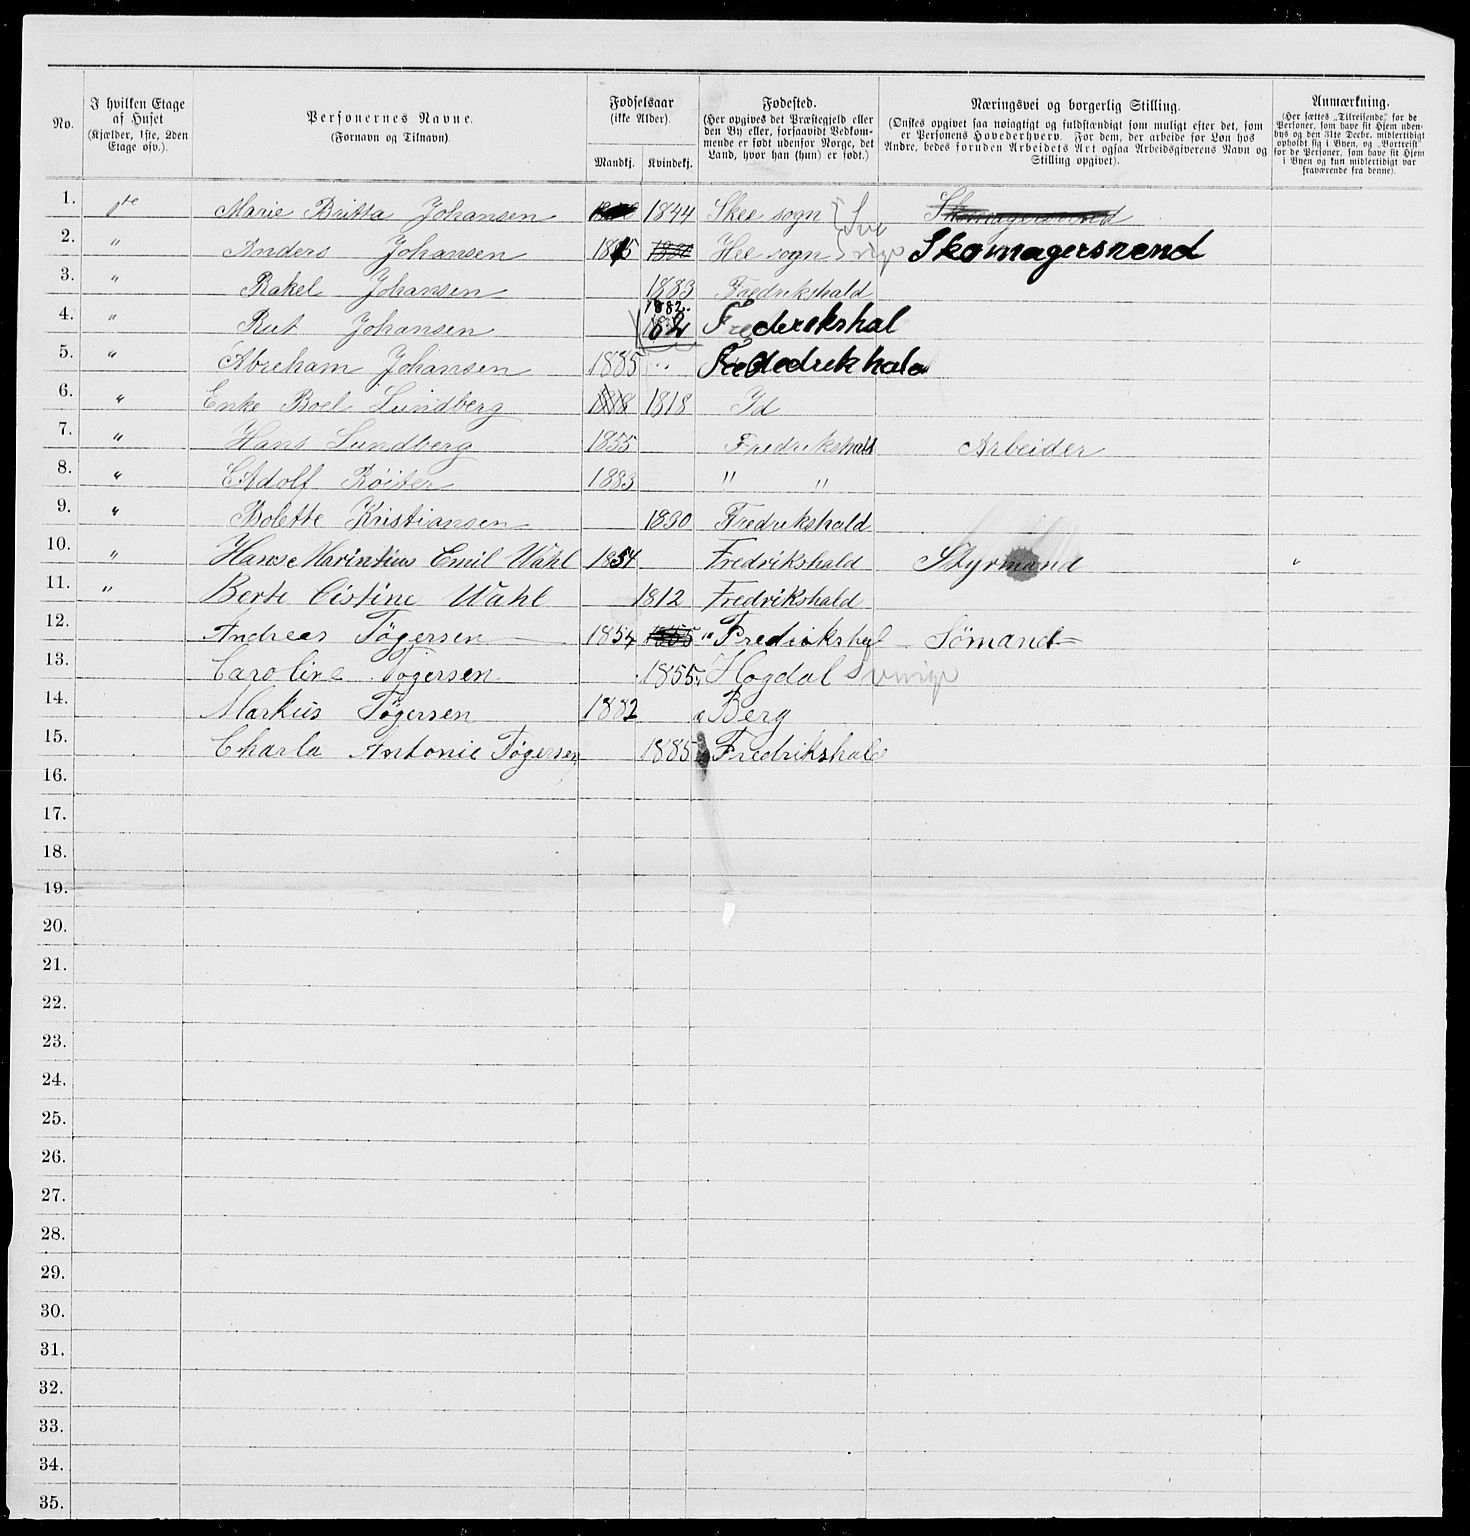 No. | I hvilken Etage af Huset (Kjælder, 1ste, 2den Etage osv.). | Personernes Navne. (Fornavn og Tilnavn). | Fødselsaar (ikke Alder). Mandkj. | Kvindekj. | Fødested. (Her opgives det Præstegjeld eller den By eller, forsaavidt Vedkommende er født udenfor Norge, det Land, hvor han (hun) er født.) | Næringsvei og borgerlig Stilling. (Ønskes opgivet saa nøiagtigt og fuldstændigt som muligt efter det, som er Personens Hovederhverv. For dem, der arbeide for Løn hos Andre, bedes foruden Arbeidets Art ogsaa Arbeidsgiverens Navn og Stilling opgivet). | Anmærkning. (Her sættes „Tilreisende“ for de Personer, som have sit Hjem udenbys og den 31te Decbr. midlertidigt opholdt sig i Byen, og „Bortreist“ for de Personer, som have sit Hjem i Byen og kun midlertidigt var fraværende fra denne).
1. 1te Marie Britta Johansen 1844 Skee sogn Sve
2. " Anders Johansen 18 5 Hee sogn rige Skomagersvend
3. " Rakel Johansen 1883 Fredrikshald
4. " Rut Johansen 1882. Frederikshal
5. " Abreham Johansen 1885
6. " Enke Boel Lundberg 1818 Id
7. " Hans Lundberg 1855 Fredrikshald Arbeider
8. " Adolf Röiter 1883 " "
9. " Bolette Kristiansen 1830 Fredrikshald
10. " Hans Marintius Emil Wahl 1854 Fredrikshald Styrmand "
11. " Berte Cistine Wahl 1812 Fredrikshald
12. Andreas Tøgersen 1854 " Fredrikshal Sömand
13. Caroline Tøgersen 1855 Hogdal Sverige
14. Markus Tøgersen 1882 Berg
15. Charla Antonie Tøgersen 1885 Fredrikshald
16.
17.
18.
19.
20.
21.
22.
23.
24.
25.
26.
27.
28.
29.
30.
31.
32.
33.
34.
35.